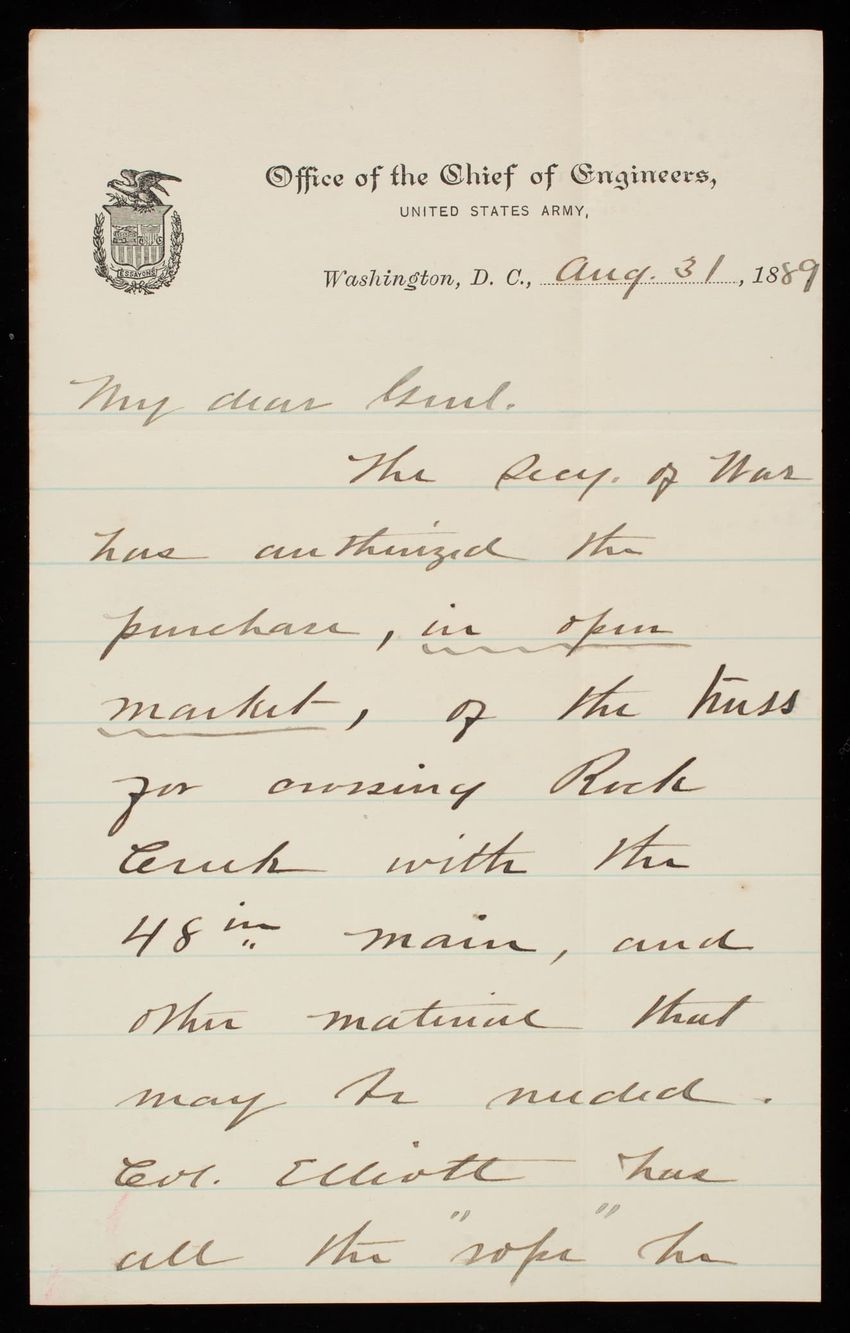 Office of the Chief of Engineers,
UNITED STATES ARMY,
ESSAYONS
Washington, D. C., Aug. 31, 1889
My dear Genl.
The Secy. of War
has authorized the
purchase, in open
market, of the truss
for crossing Rock
Creek with the
48 in main, and
other material that
may be needed.
Col. Elliott has
all the "rope" he